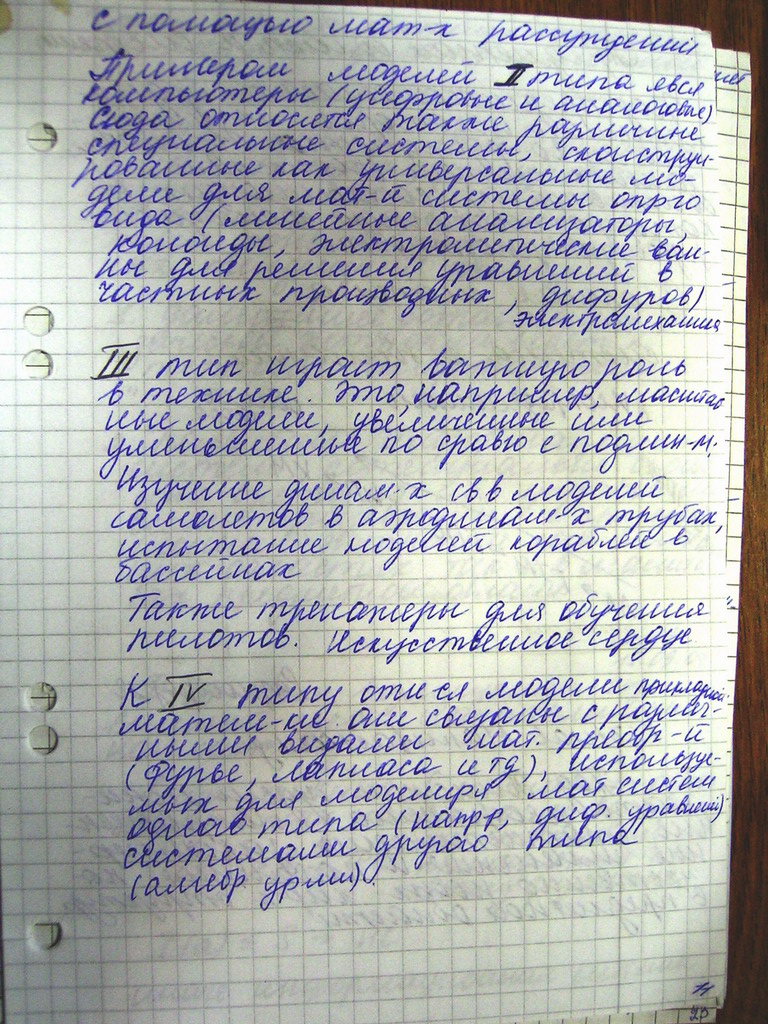 с помощью мат-х рассуждений
Примером моделей II типа явся
компьютеры (цифровые и аналоговые)
Сюда относятся также различные
специальные системы, сконструи-
рованные как универсальные мо-
дели для мат-й системы опр-го
вида (линейные анализаторы,
коноиды, электролитические ван-
ны для решения уравнений в
частных производных, дифуров)
электромеханич
III тип играет важную роль
в технике. Это, например, масштаб
ные модели, увеличенные или
уменьшенные по сравю с подлин-м.
Изучение динам-х св-в моделей
самолетов в аэродинам-х трубах,
испытание моделей кораблей в
бассейнах
Также тренажеры для обучения
пилотов. Искусственное сердце
К IV типу отнся модели прикладной
матем-ки. они связаны с различ-
ными видами мат. преобр-й
(Фурье, Лапласа и тд), используе-
мых для моделиря мат систем
одного типа (напр, диф. уравнений)
системами другого типа
(алгебр урми).